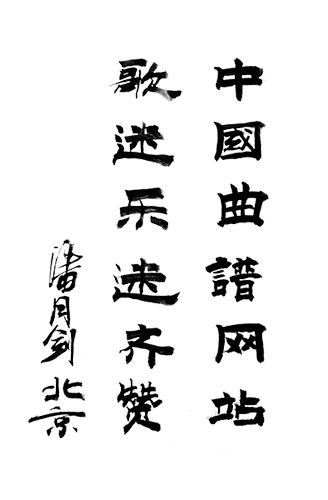 中國曲譜网站
歌迷乐迷齐赞
潘月剑 北京